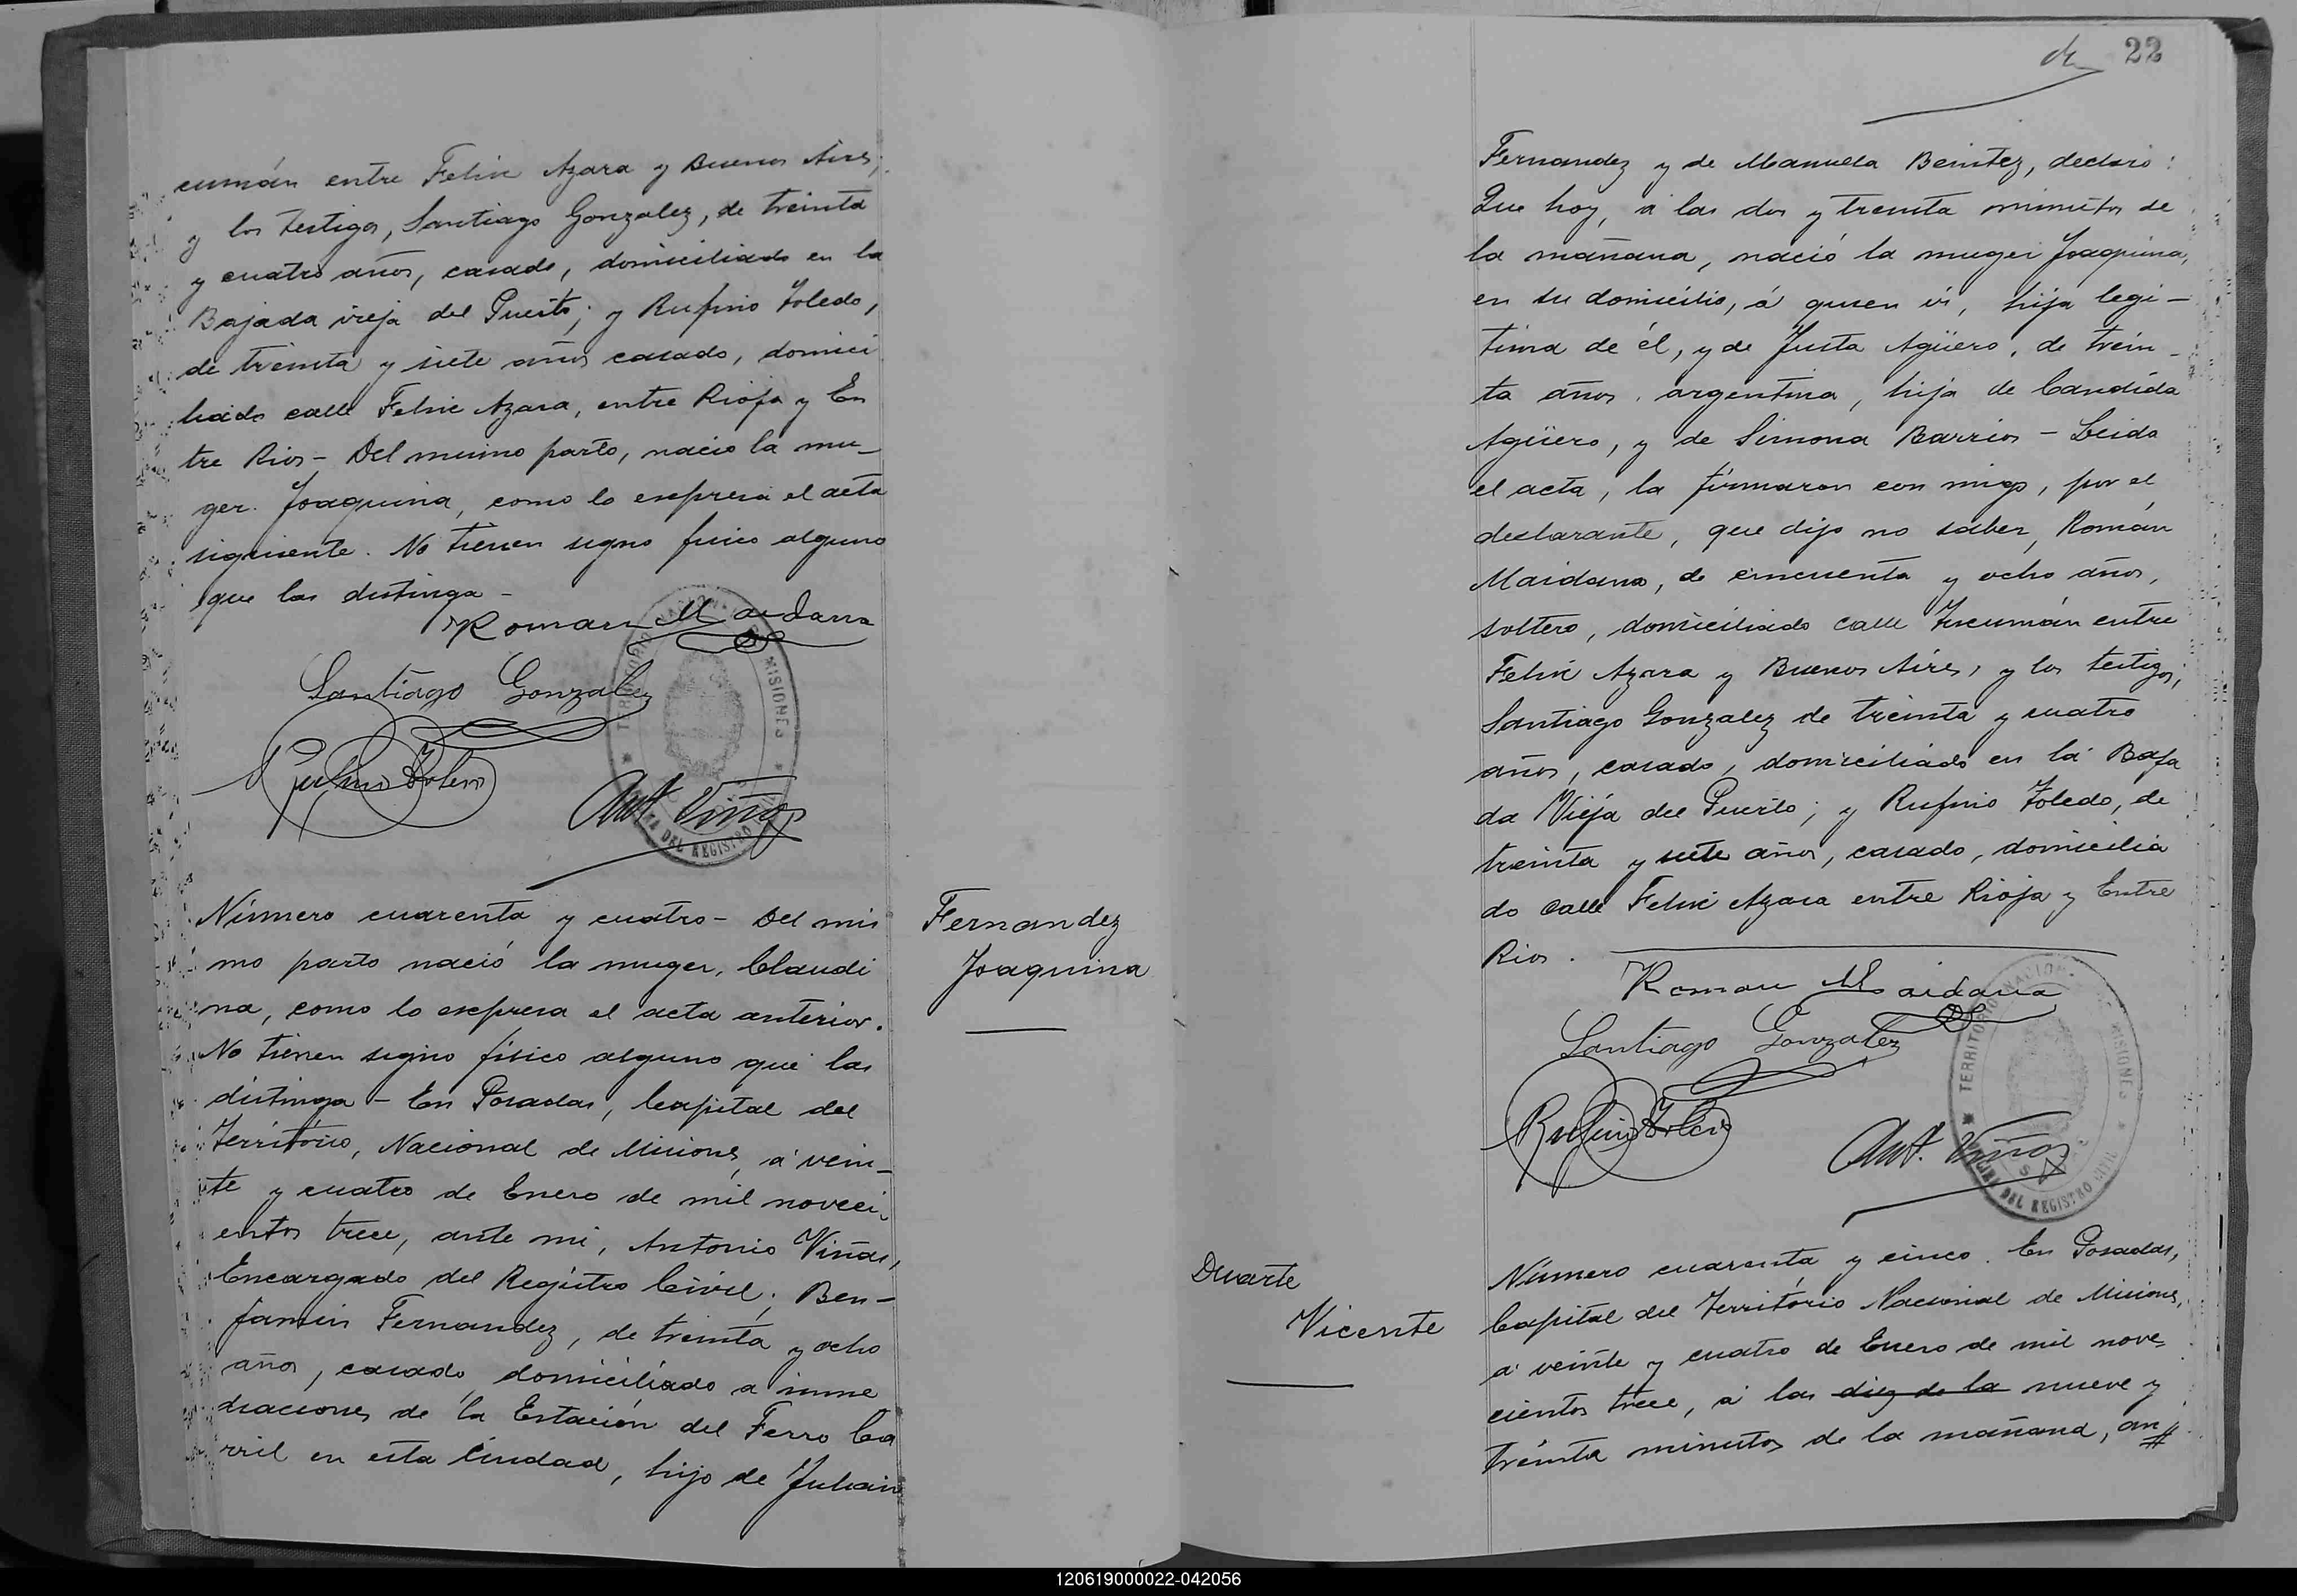 cumán entre Felix Azara y Buenos Aires,
y los testigos, Santiago Gonzalez, de treinta
y cuatro años, casado, domiciliado en la
Bajada vieja del Puerto; y Rufino Toledo,
de treinta y siete años casado, domici
liado calle Felix Azara, entre Rioja y En
tre Rios - Del mismo parto, nació la mu-
ger. Joaquina, como lo espresa el acta
siguiente. No tienen signo fisico alguno
que las distinga -
Roman Maidana
Santiago Gonzalez
Rufino Toledo
Ant. Viñas
TERRITORIO NACIONAL DE MISIONES
DEL REGISTRO CIVIL
Número cuarenta y cuatro - Del mis
mo parto nació la muger, Claudi
na, como lo espresa el acta anterior.
No tienen signo físico alguno que las
distinga - En Posadas, Capital del
Território, Nacional de Misiones, á vein-
te y cuatro de Enero de mil noveci
entos trece, ante mi, Antonio Viñas,
Encargado del Registro Civil; Ben-
jamin Fernandez, de treinta y ocho
años, casado, domiciliado a inme
diaciones de la Estación del Ferro Ca
rril en esta Ciudad, hijo de Julian
Fernandez
Joaquina
22
Fernandez y de Manuela Benitez, declaró:
Que hoy, á las dos y treinta minutos de
la mañana, nació la muger Joaquina,
en su domicilio, á quien ví, hija legi-
tima de él, y de Justa Agüero, de trein-
ta años, argentina, hija de Candida
Agüero, y de Simona Barrios - Leida
el acta, la firmaron con migo, por el
declarante, que dijo no saber, Román
Maidana, de cincuenta y ocho años,
soltero, domiciliado calle Tucumán entre
Felix Azara y Buenos Aires, y los testigos,
Santiago Gonzalez de treinta y cuatro
años, casado, domiciliado en la Baja
da Vieja del Puerto; y Rufino Toledo, de
treinta y siete años, casado, domicilia
do calle Felix Azara entre Rioja y Entre
Rios.
Roman Maidana
Santiago Gonzalez
Rufino Toledo
Ant. Viñas
TERRITORIO NACIONAL DE MISIONES
DEL REGISTRO CIVIL
Duarte
Vicente
Número cuarenta y cinco. En Posadas,
Capital del Território Nacional de Misiones,
á veinte y cuatro de Enero de mil nove-
cientos trece, á las diez de la nueve y
treinta minutos de la mañana, an
120619000022-042056